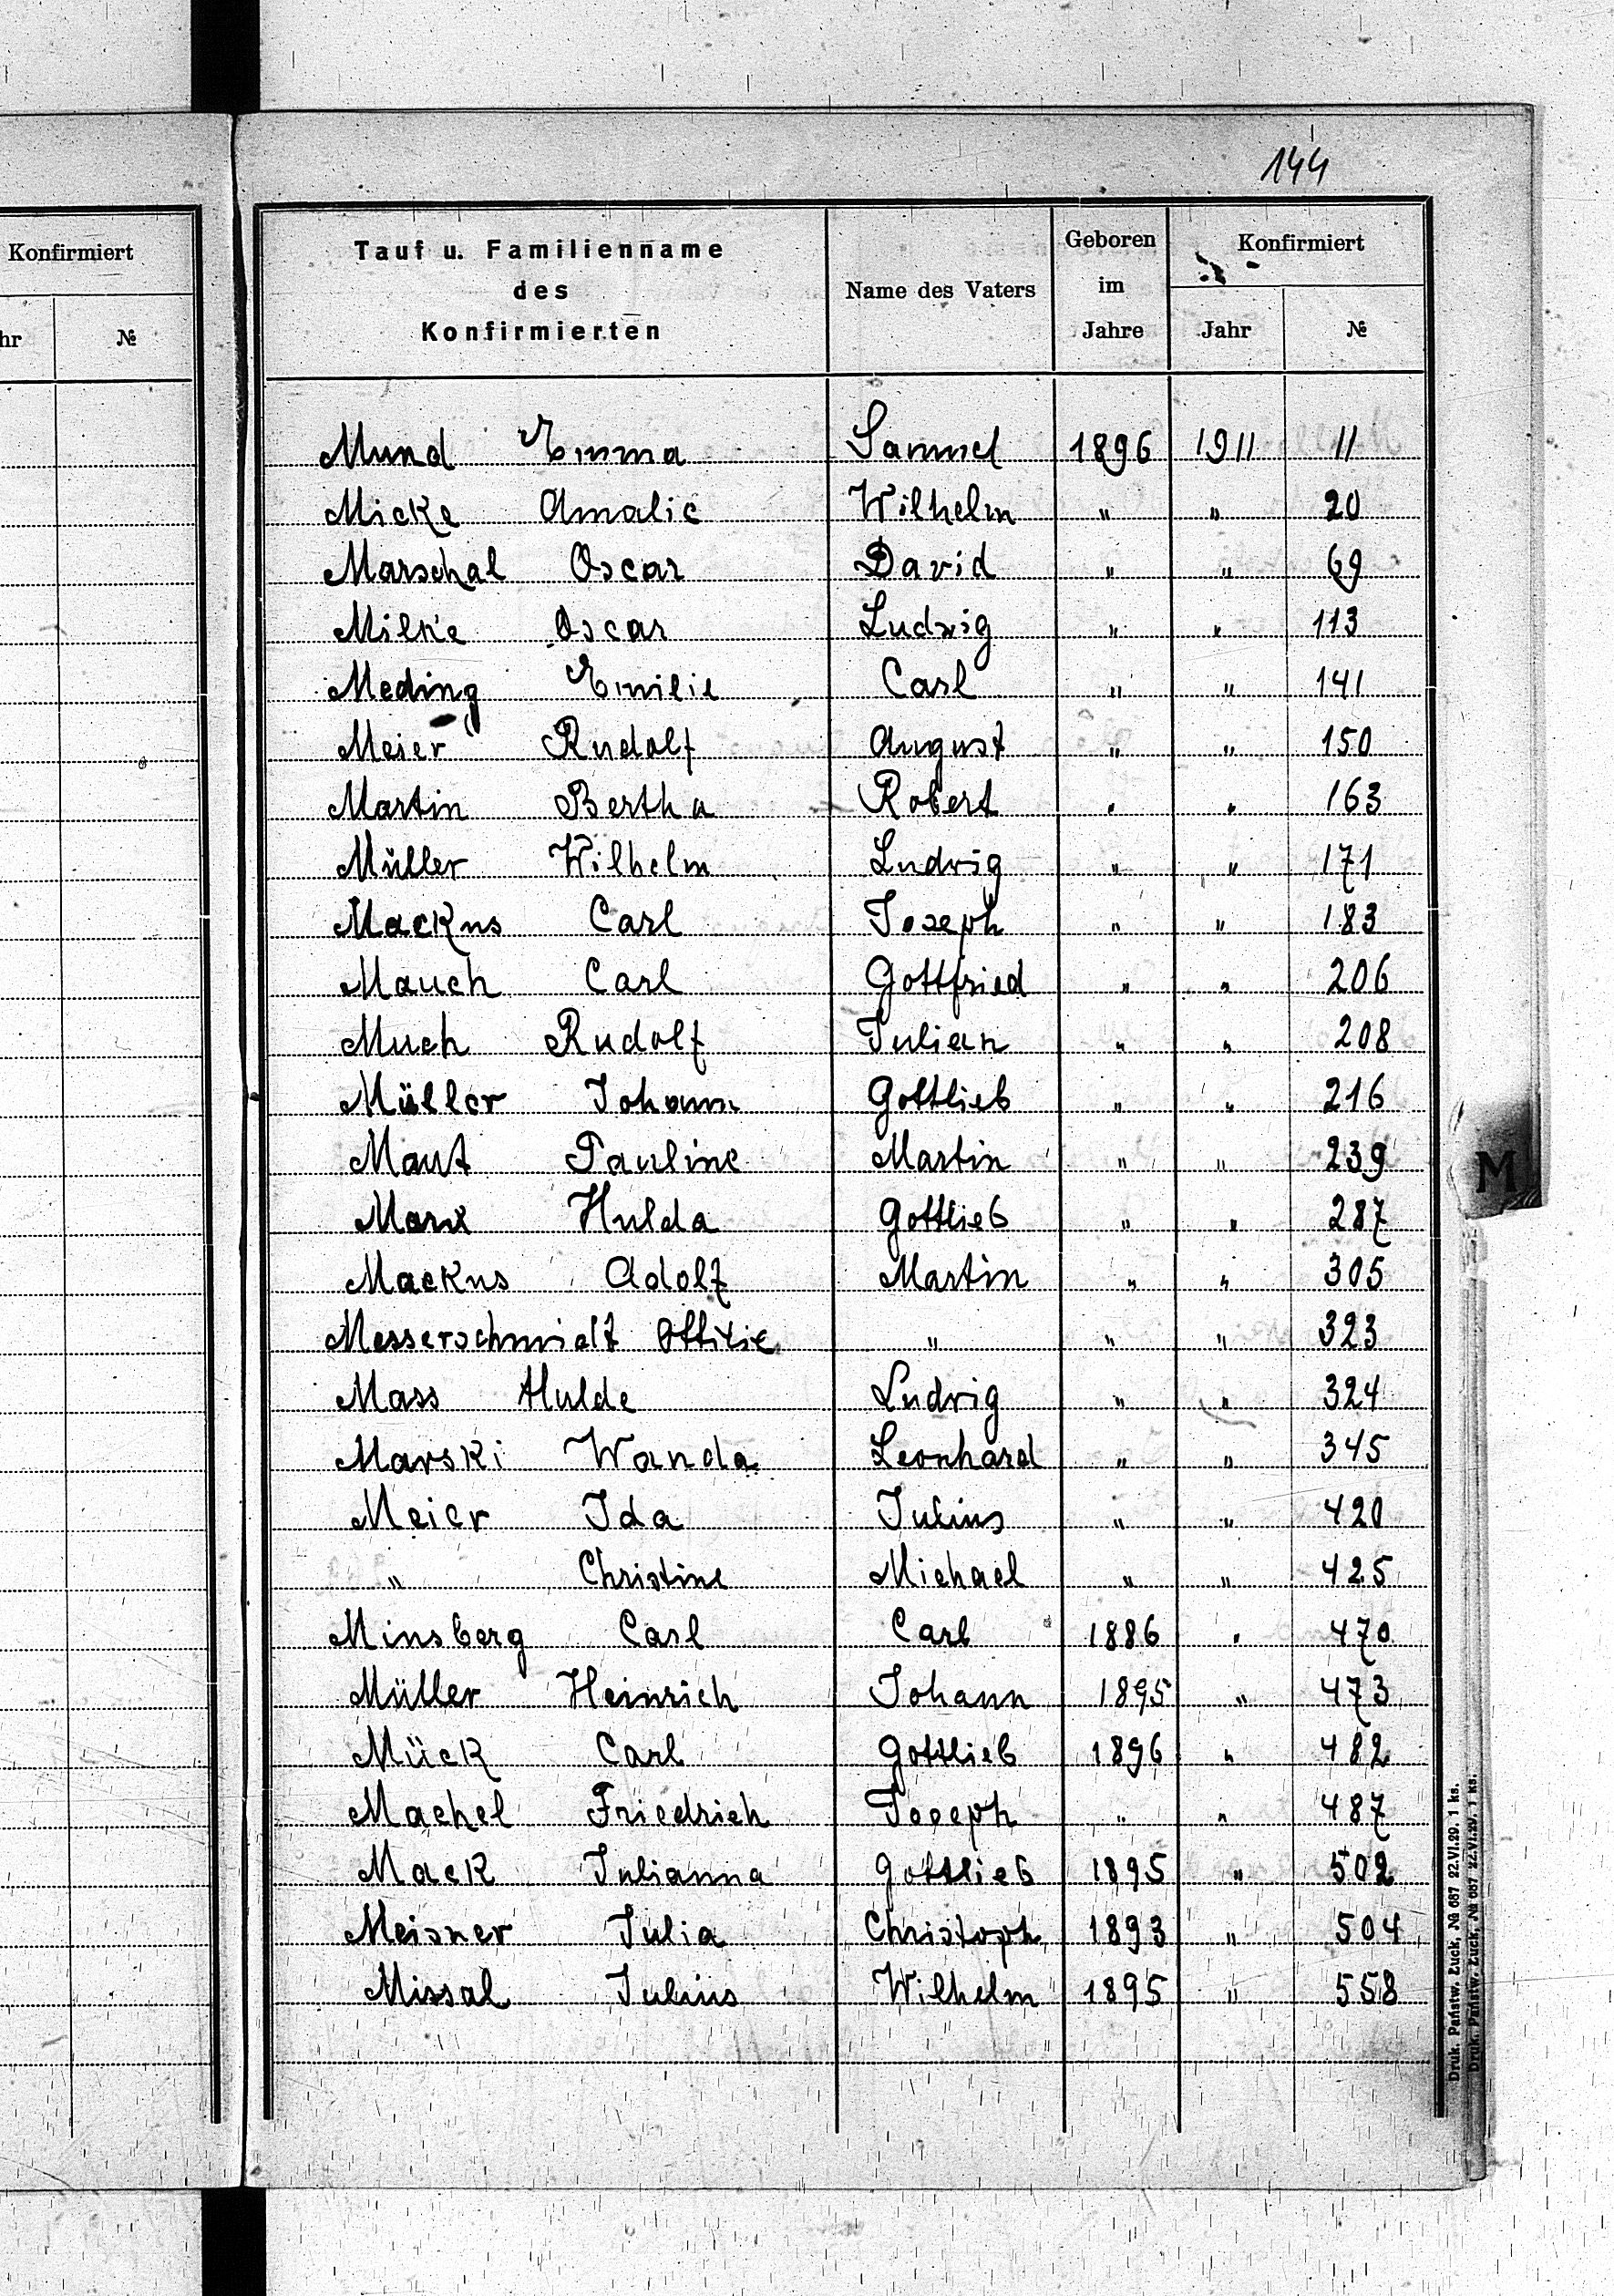 144
Konfirmiert
hr №
Tauf u. Familienname des Konfirmierten Name des Vaters Geboren im Jahre Konfirmiert
Jahr №
Mund Emma Samuel 1896 1911 11
Micke Amalie Wilhelm " " 20
Marschal Oscar David " " 69
Milke Oscar Ludwig " " 113
Meding Emilie Carl " " 141
Meier Rudolf August " " 150
Martin Bertha Robert " " 163
Müller Wilhelm Ludwig " " 171
Mackus Carl Joseph " " 183
Mauch Carl Gottfried " " 206
Much Rudolf Julian " " 208
Müller Johann Gottlieb " " 216
Maut Pauline Martin " " 239
M
Marx Hulda Gottlieb " " 287
Mackus Adolf Martin " " 305
Messerschmidt Ottilie " " " 323
Mass Hulde Ludwig " " 324
Marski Wanda Leonhard " " 345
Meier Ida Julius " " 420
" Christine Michael " " 425
Minsberg Carl Carl 1886 " 470
Müller Heinrich Johann 1895 " 473
Mück Carl Gottlieb 1896 " 482
Machel Friedrich Joseph " " 487
Mack Julianna Gottlieb 1895 " 502
Meisner Julia Christoph 1893 " 504
Missal Julius Wilhelm 1895 " 558
Druk. Państw. Łuck, № 667 22.VI.29. 1 ks.
Druk. Państw. Łuck, № 667 22.VI.29. 1 ks.